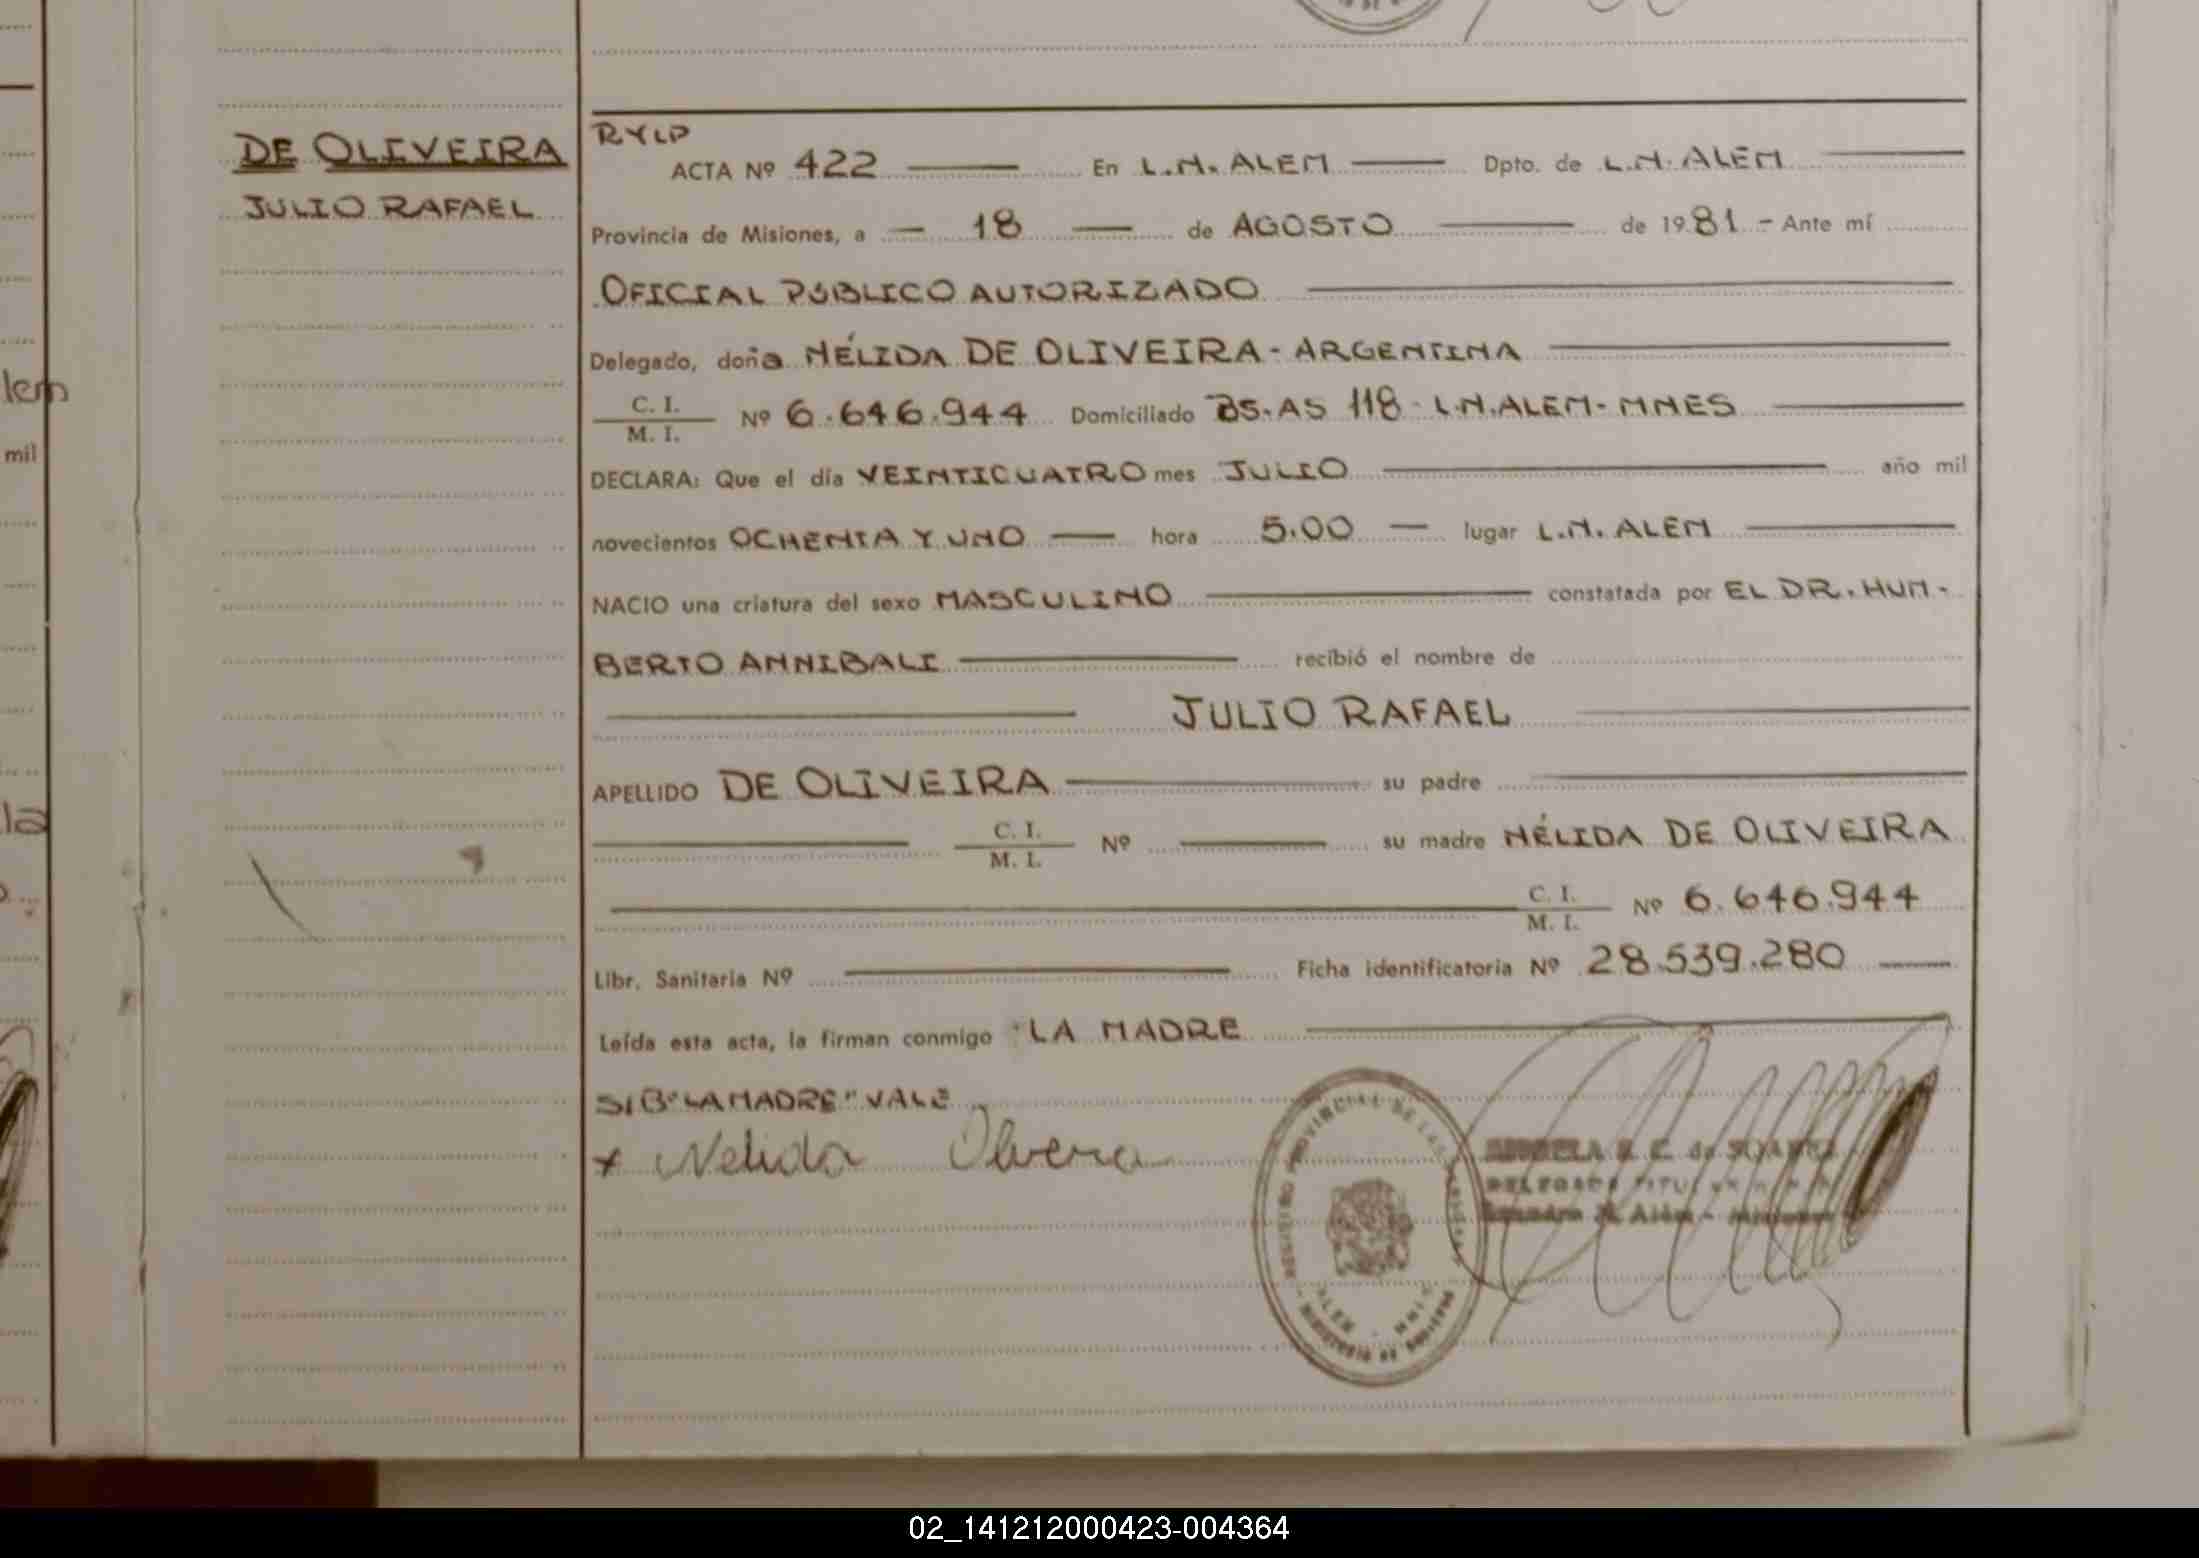 DE OLIVEIRA
JULIO RAFAEL
lem
mil
la
RYLP
ACTA Nº 422 En L.N. ALEM Dpto. de L.N. ALEM
Provincia de Misiones, a 18 de AGOSTO de 1981 - Ante mí
OFICIAL PÚBLICO AUTORIZADO
Delegado, doña NÉLIDA DE OLIVEIRA - ARGENTINA
C. I.
M. I.
Nº 6.646.944 Domiciliado BS. AS 118 - L.N. ALEM - MNES
DECLARA: Que el día VEINTICUATRO mes JULIO año mil
novecientos OCHENTA Y UNO hora 5.00 lugar L.N. ALEM
NACIO una criatura del sexo MASCULINO constatada por EL DR. HUM-
BERTO ANNIBALI recibió el nombre de
JULIO RAFAEL
APELLIDO DE OLIVEIRA su padre
C. I.
M. I.
Nº su madre NÉLIDA DE OLIVEIRA
C. I.
M. I.
Nº 6.646.944
Libr. Sanitaria Nº Ficha identificatoria Nº 28.539.280
Leída esta acta, la firman conmigo LA MADRE
S/B "LA MADRE" VALE
x Nelida Olivera
PROVINCIAL DE LAS
ALEM - MNES
MINISTERIO DE GOBIERNO
E. C. de SUAREZ
DELEGADO TITULAR
Leandro N. Além - Misiones
02_141212000423-004364